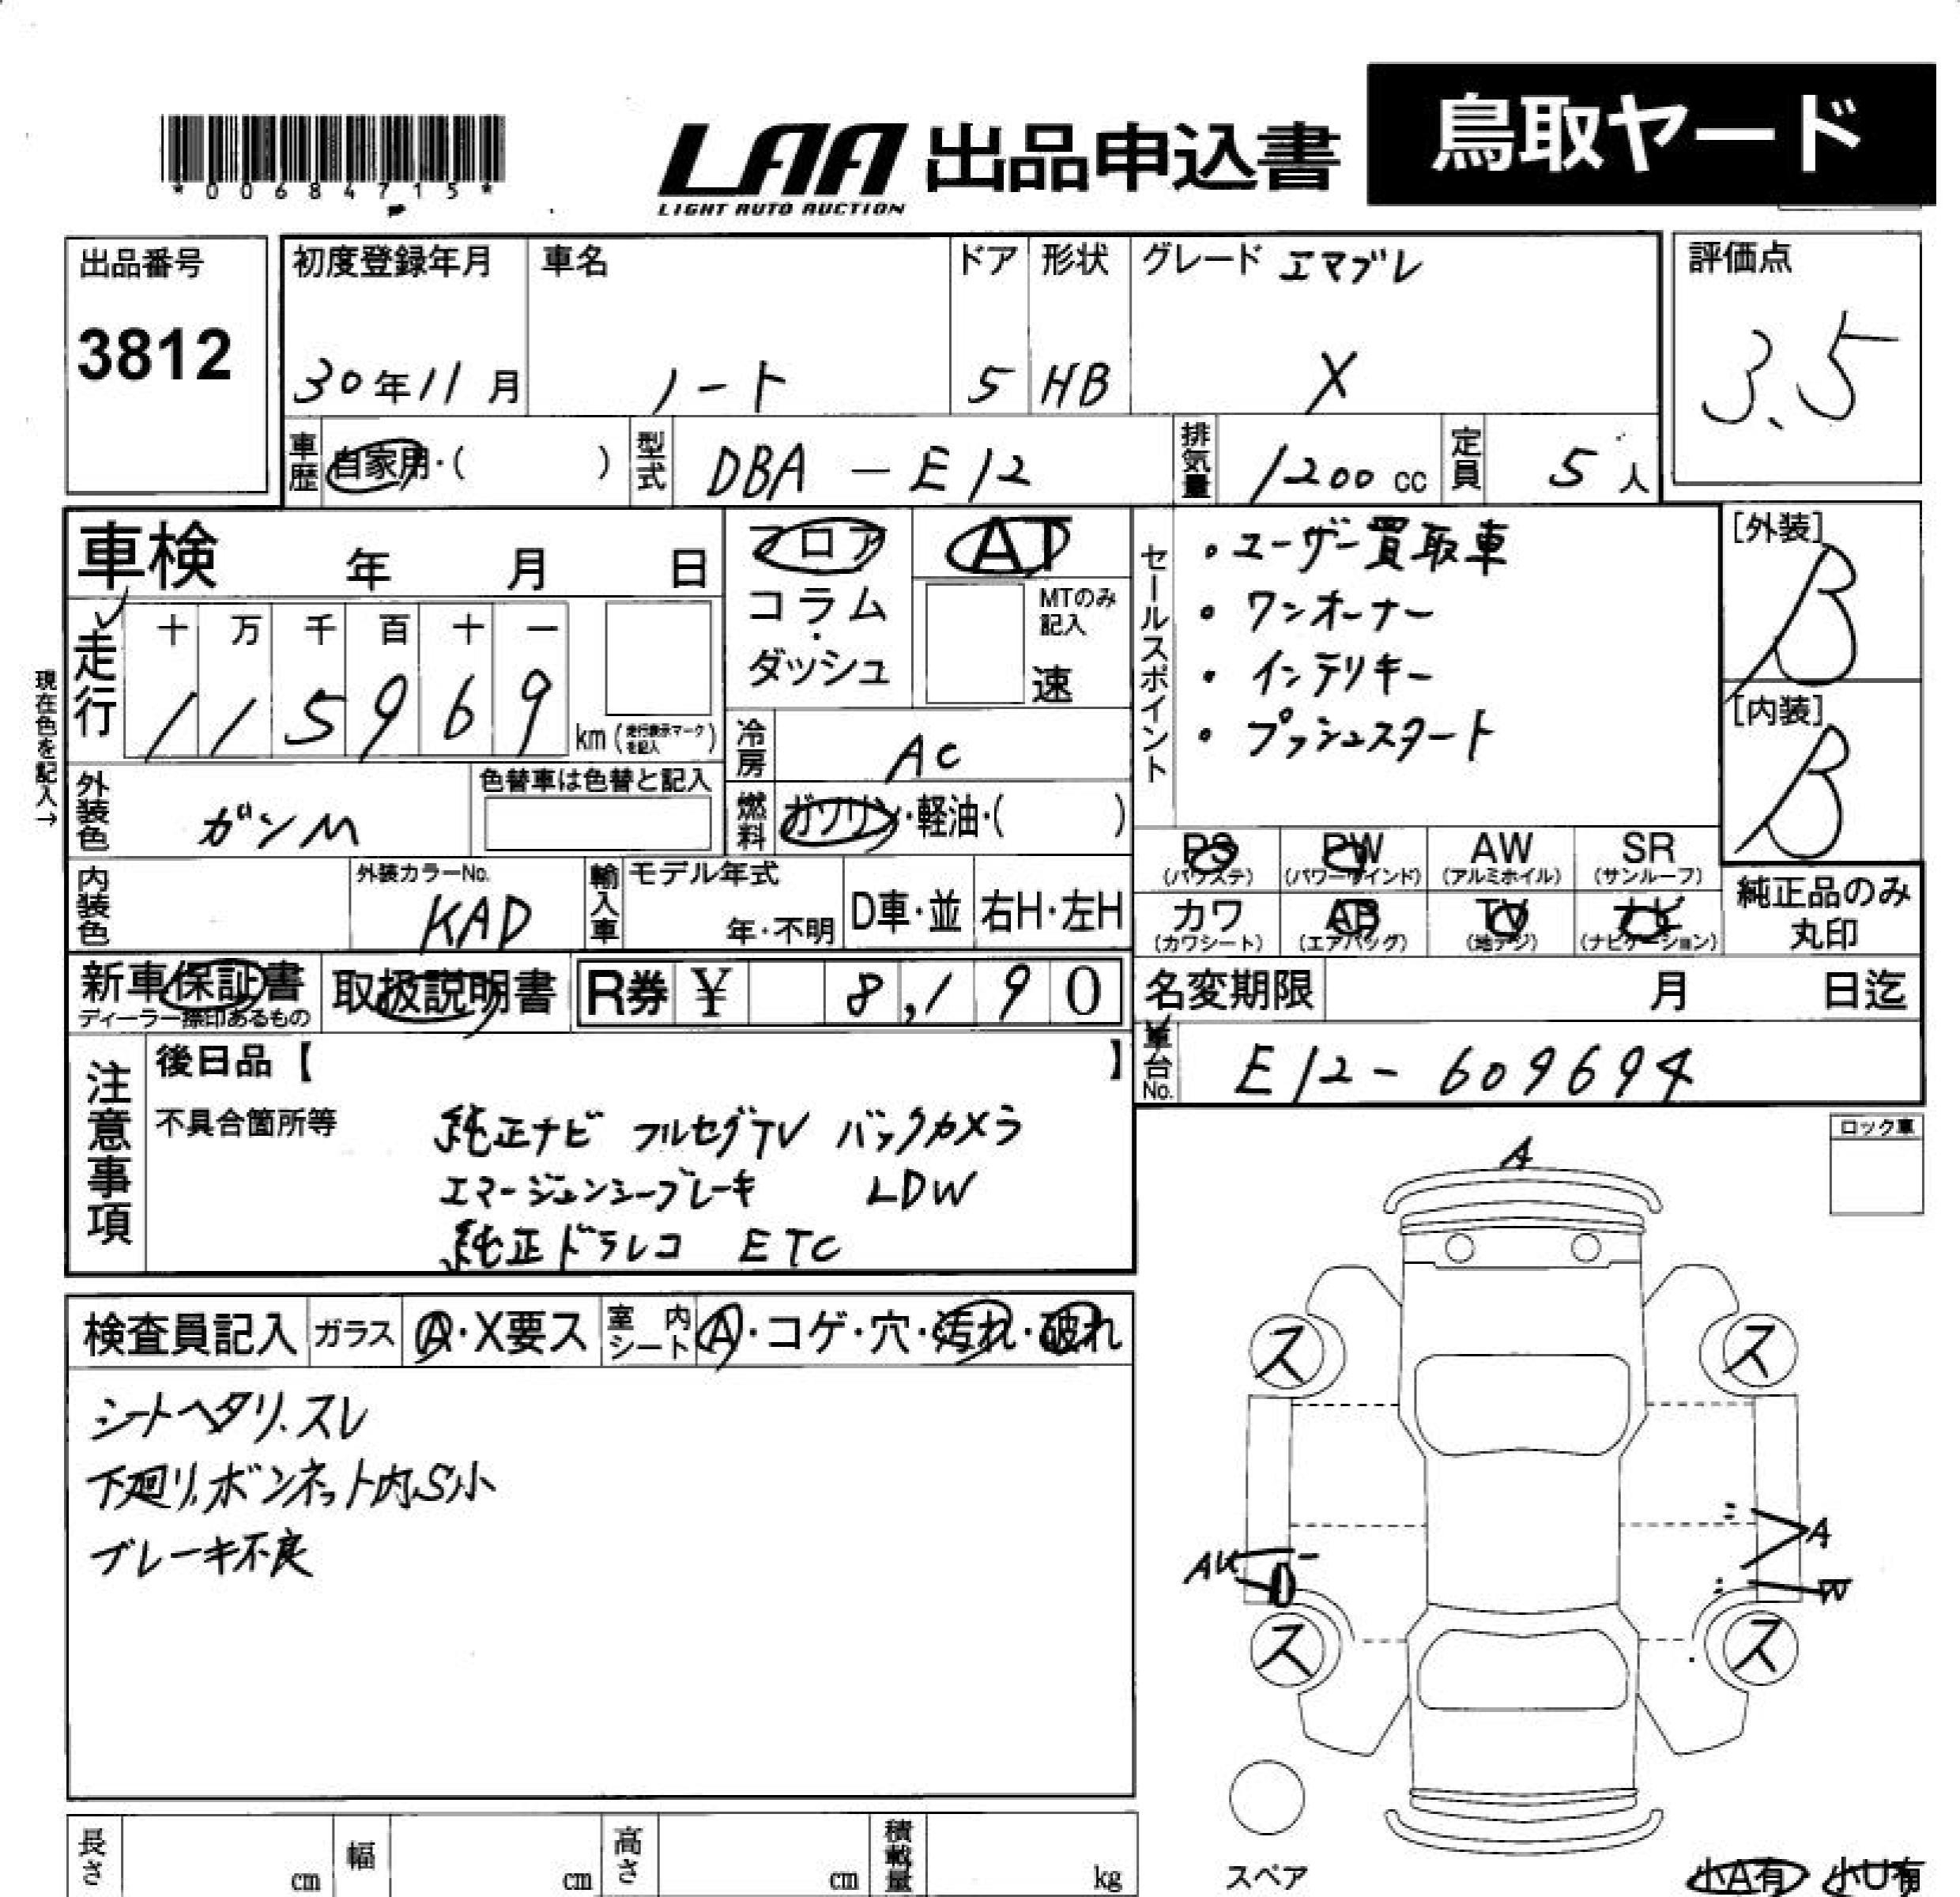 鳥取ヤード
*00684715*
LAA 出品申込書
LIGHT AUTO AUCTION
出品番号
3812
初度登録年月
30年11月
車名
ノート
ドア
5
形状
HB
グレード エマブレ
X
評価点
3.5
車歴 自家用・( )
型式 DBA-E12
排気量 1200cc
定員 5人
車検 年 月 日
フロア
コラム・ダッシュ
AT
MTのみ記入
速
セールスポイント
・ユーザー買取車
・ワンオーナー
・インテリキー
・プッシュスタート
[外装]
B
[内装]
B
現在色を記入→
走行
十 万 千 百 十 一
1 1 5 9 6 9 km (走行表示マークを記入)
冷房 AC
外装色 ガンM
色替車は色替と記入
燃料 ガソリン・軽油・( )
内装色
外装カラーNo.
KAD
輸入車
モデル年式
年・不明
D車・並
右H・左H
PS (パワステ)
PW (パワーウインド)
AW (アルミホイル)
SR (サンルーフ)
カワ (カワシート)
AB (エアバッグ)
TV (地デジ)
ナビ (ナビゲーション)
純正品のみ
丸印
新車保証書
ディーラー捺印あるもの
取扱説明書
R券 ¥ 8,190
名変期限 月 日迄
車台No. E12-609694
注意事項
後日品【 】
不具合箇所等
純正ナビ フルセグTV バックカメラ
エマージェンシーブレーキ LDW
純正ドラレコ ETC
ロック車
検査員記入
ガラス A・X要ス
室内シート A・コゲ・穴・汚れ・破れ
シートヘタリ、スレ
下廻り、ボンネット内S小
ブレーキ不良
A
ス
ス
A
AU
W
ス
ス
スペア
小A有 小U有
長さ cm
幅 cm
高さ cm
積載量 kg